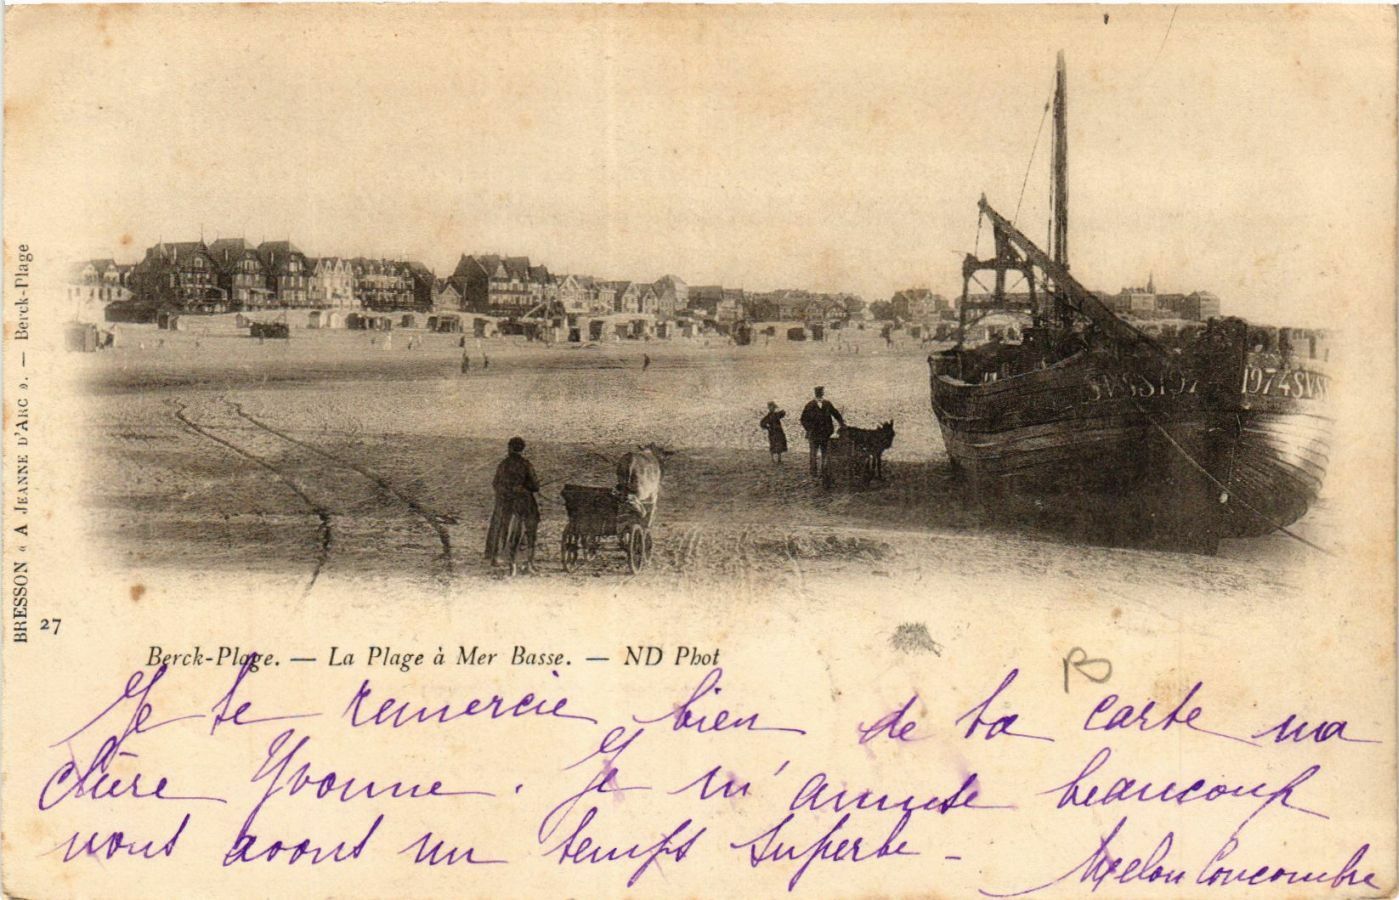 BRESSON « A JEANNE D'ARC ». — Berck-Plage
1974 SVS
27
Berck-Plage. — La Plage à Mer Basse. — ND Phot
B
Je te remercie bien de ta carte ma
chère Yvonne. Je m'amuse beaucoup
nous avons un temps superbe –
Melon Concombre